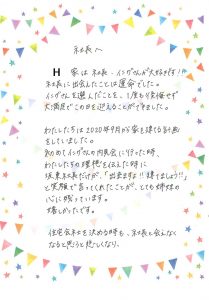 社長へ
H 家は社長、イシダさんが大好き!
社長に出会えたことは運命でした。
イシダさんを選んだことを、1度もう後悔せず
大満足でこの日を迎えることができました。
わたしたちは2020年9月から家を建てる計画
をしていました。
初めてイシダさんの内見会に行った時、
わたしたちの理想を伝えた時に
坂東社長だけが、「出来ますよ!!建てましょう!!」
と笑顔で言ってくれたことが、とても姉妹の
心に残っています。
嬉しかったです。
住宅会社を決める時も、社長と会えなく
なると思うと悲しくなり、